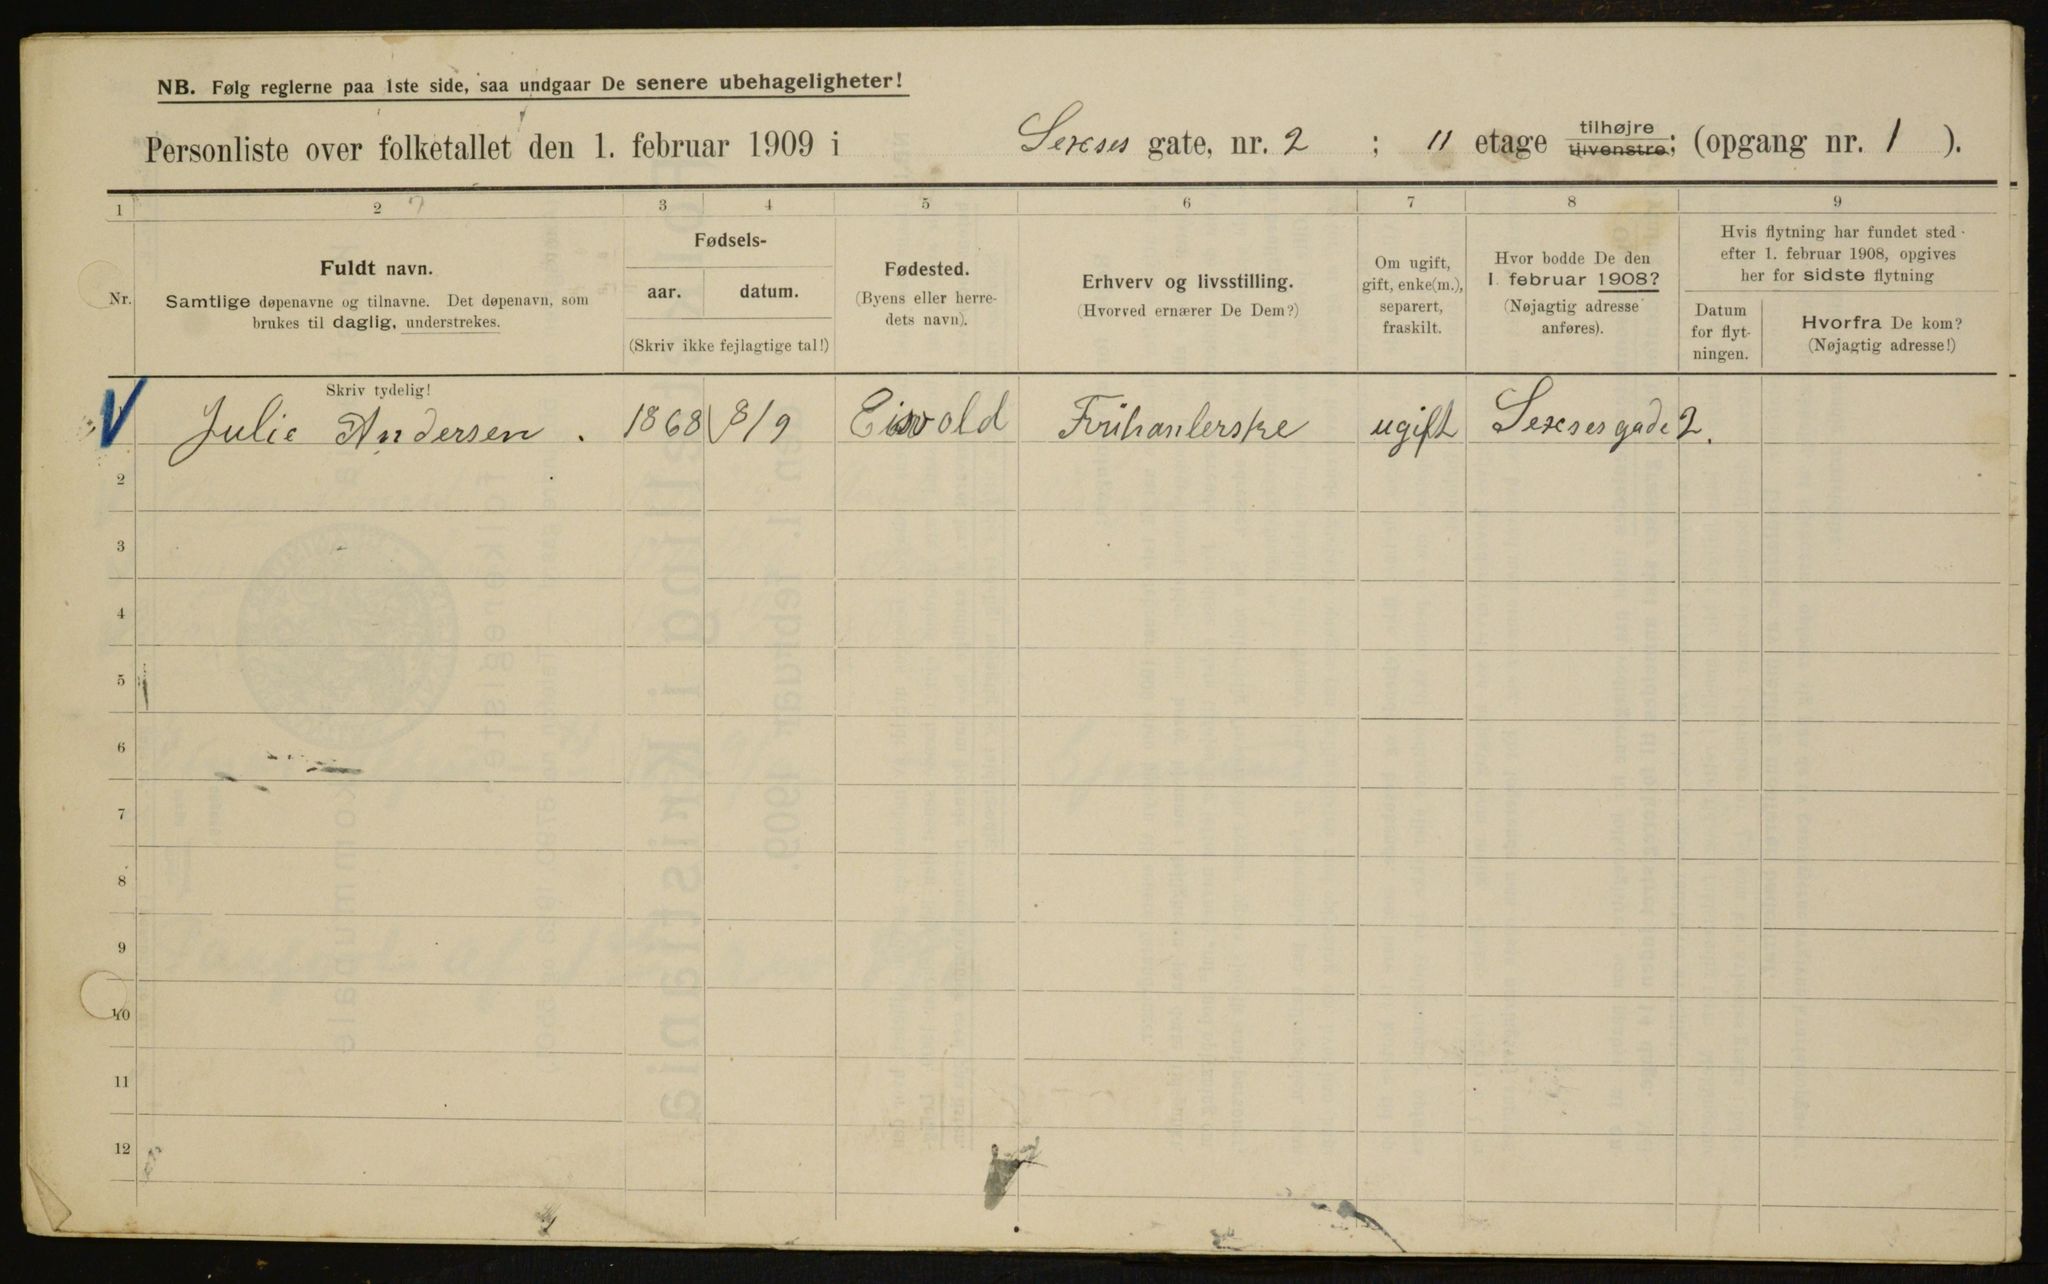 NB. Følg reglerne paa 1ste side, saa undgaar De senere ubehageligheter!
Personliste over folketallet den 1. februar 1909 i Sexses gate, nr. 2 ; 11 etage tilhøjre tilvenstre; (opgang nr. 1 ).
1 2 3 4 5 6 7 8 9
Nr.
Fuldt navn.
Samtlige døpenavne og tilnavne. Det døpenavn, som
brukes til daglig, understrekes.
Fødsels-
aar. datum.
(Skriv ikke fejlagtige tal!)
Fødested.
(Byens eller herre-
dets navn).
Erhverv og livsstilling.
(Hvorved ernærer De Dem?)
Om ugift,
gift, enke(m.),
separert,
fraskilt.
Hvor bodde De den
1. februar 1908?
(Nøjagtig adresse
anføres).
Hvis flytning har fundet sted
efter 1. februar 1908, opgives
her for sidste flytning
Datum
for flyt-
ningen.
Hvorfra De kom?
(Nøjagtig adresse!)
Skriv tydelig!
Julie Andersen . 1868 8/9 Eisvold Frühanlerske ugift Sexsesgade 2.
2
3
4
5
6
7
8
9
10
11
12